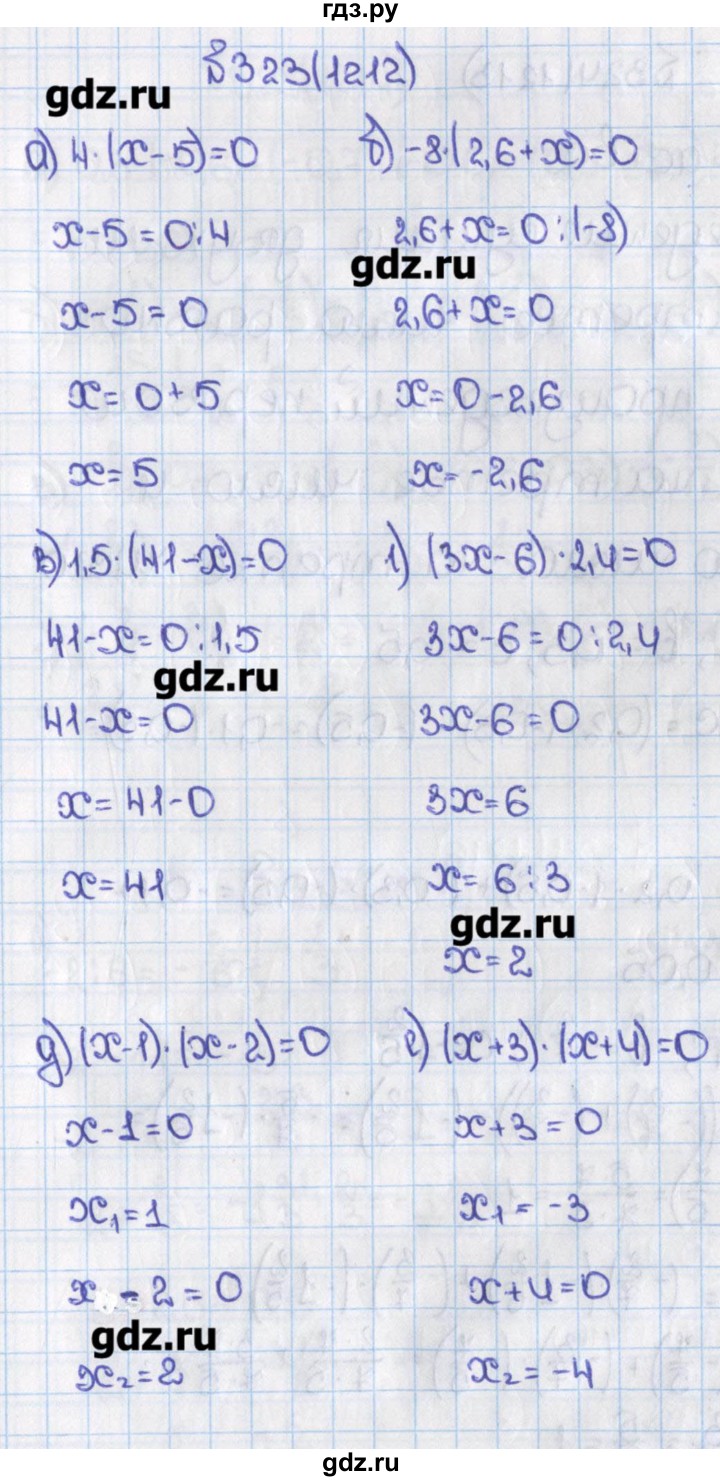 гдз.ру
§323(1212)
gdz.ru
а) 4·(x-5)=0
x-5=0:4
x-5=0
x=0+5
x=5
б) -8·(2,6+x)=0
2,6+x=0:(-8)
gdz.ru
2,6+x=0
x=0-2,6
x=-2,6
в) 1,5·(41-x)=0
41-x=0:1,5
gdz.ru
41-x=0
x=41-0
x=41
г) (3x-6)·2,4=0
3x-6=0:2,4
3x-6=0
3x=6
x=6:3
gdz.ru
x=2
д) (x-1)·(x-2)=0
x-1=0
x₁=1
x-2=0
gdz.ru
x₂=2
е) (x+3)·(x+4)=0
x+3=0
x₁=-3
x+4=0
x₂=-4
gdz.ru